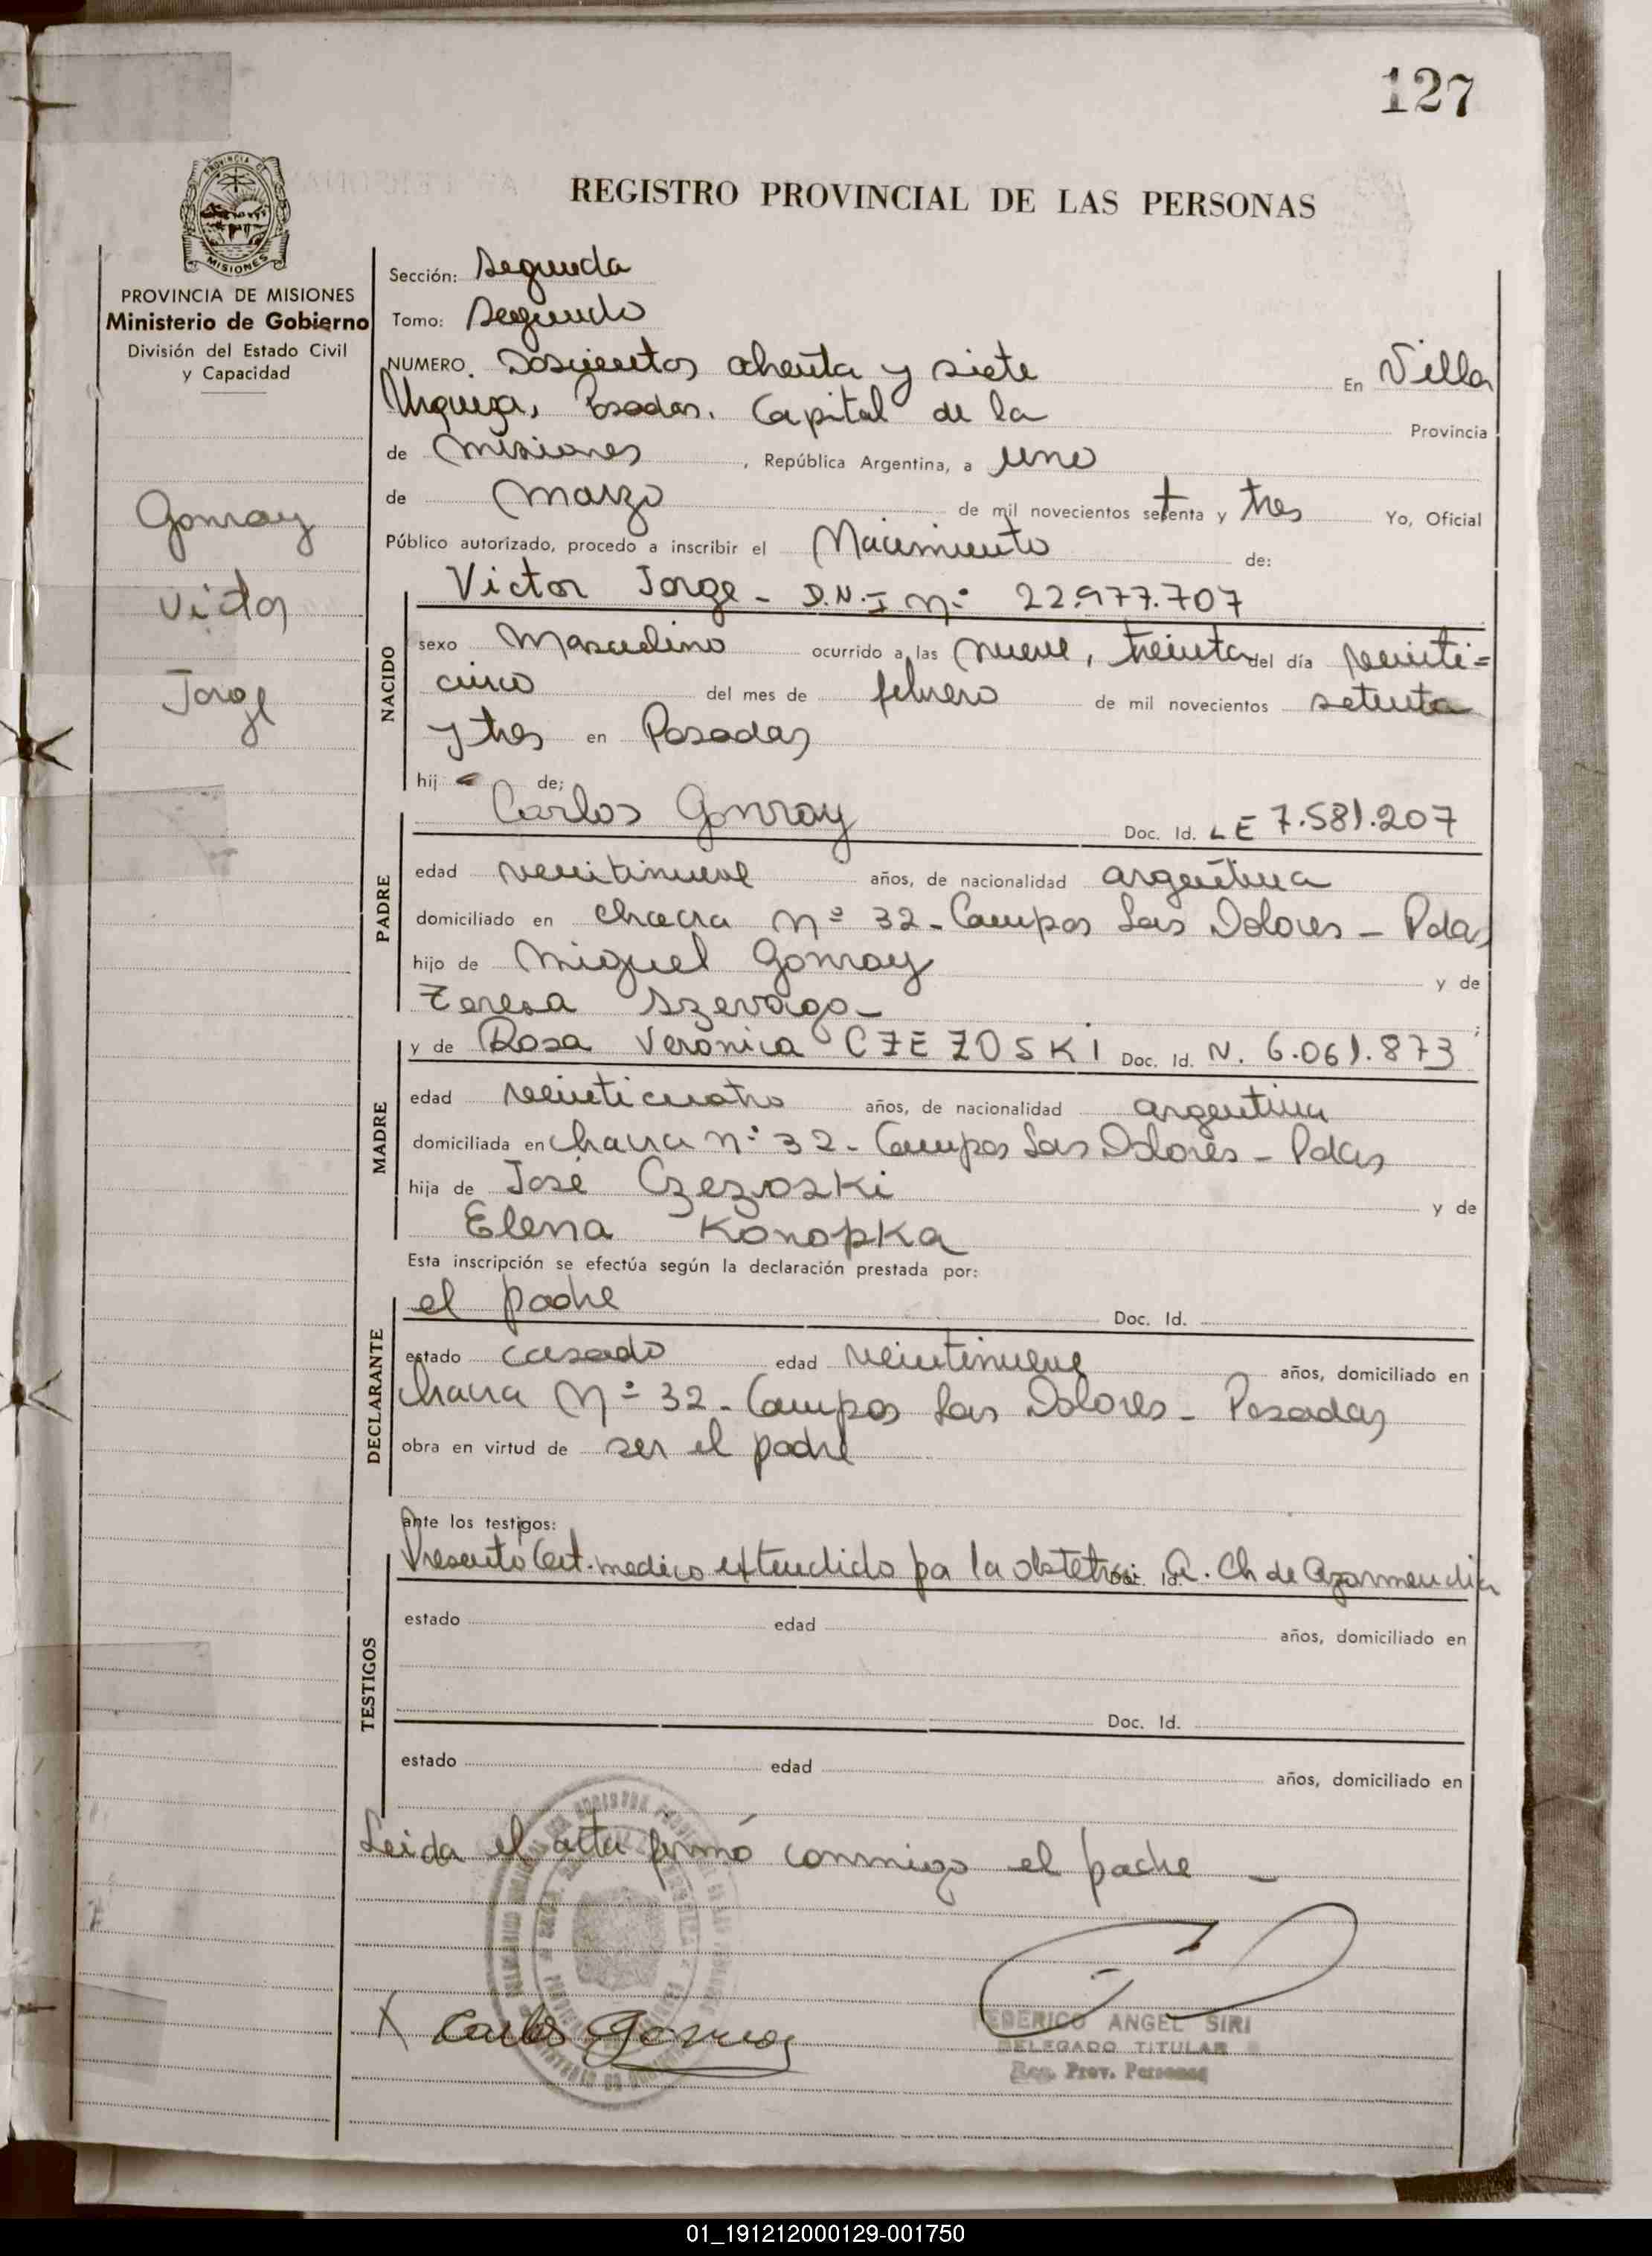 127
REGISTRO PROVINCIAL DE LAS PERSONAS
PROVINCIA DE
MISIONES
PROVINCIA DE MISIONES
Ministerio de Gobierno
División del Estado Civil
y Capacidad
Gonray
Victor
Jorge
Sección: Segunda
Tomo: Segundo
NUMERO. Doscientos ochenta y siete En Villa
Urquiza, Posadas. Capital de la Provincia
de Misiones, República Argentina, a uno
de Marzo de mil novecientos setenta y tres Yo, Oficial
Público autorizado, procedo a inscribir el Nacimiento de:
Victor Jorge - D.N.I Nº 22.977.707
NACIDO
sexo Masculino ocurrido a las nueve, treinta del día veinti=
cinco del mes de febrero de mil novecientos setenta
y tres en Posadas
hij o de;
Carlos Gonray Doc. Id. LE 7.581.207
PADRE
edad veintinueve años, de nacionalidad argentina
domiciliado en chacra Nº 32 - Campos Las Dolores - Pdas
hijo de Miguel Gonray y de
Teresa Szevago -
y de Rosa Verónica CZEZOSKI Doc. Id. N. 6.061.873
MADRE
edad veinticuatro años, de nacionalidad argentina
domiciliada en chacra nº 32 - Campos Las Dolores - Pdas
hija de José Czezoski y de
Elena Konopka
Esta inscripción se efectúa según la declaración prestada por:
el padre Doc. Id.
DECLARANTE
estado casado edad veintinueve años, domiciliado en
chacra Nº 32 - Campos Las Dolores - Posadas
obra en virtud de ser el padre
ante los testigos:
Presentó Cert. medico extendido por la obstetra Doc. Id. A. Ch de Azarmendia
TESTIGOS
estado edad años, domiciliado en
Doc. Id.
estado edad años, domiciliado en
Leida el acta firmó conmigo el padre -
X Carlos Gonray
FEDERICO ANGEL SIRI
DELEGADO TITULAR
Reg. Prov. Personas
01_191212000129-001750